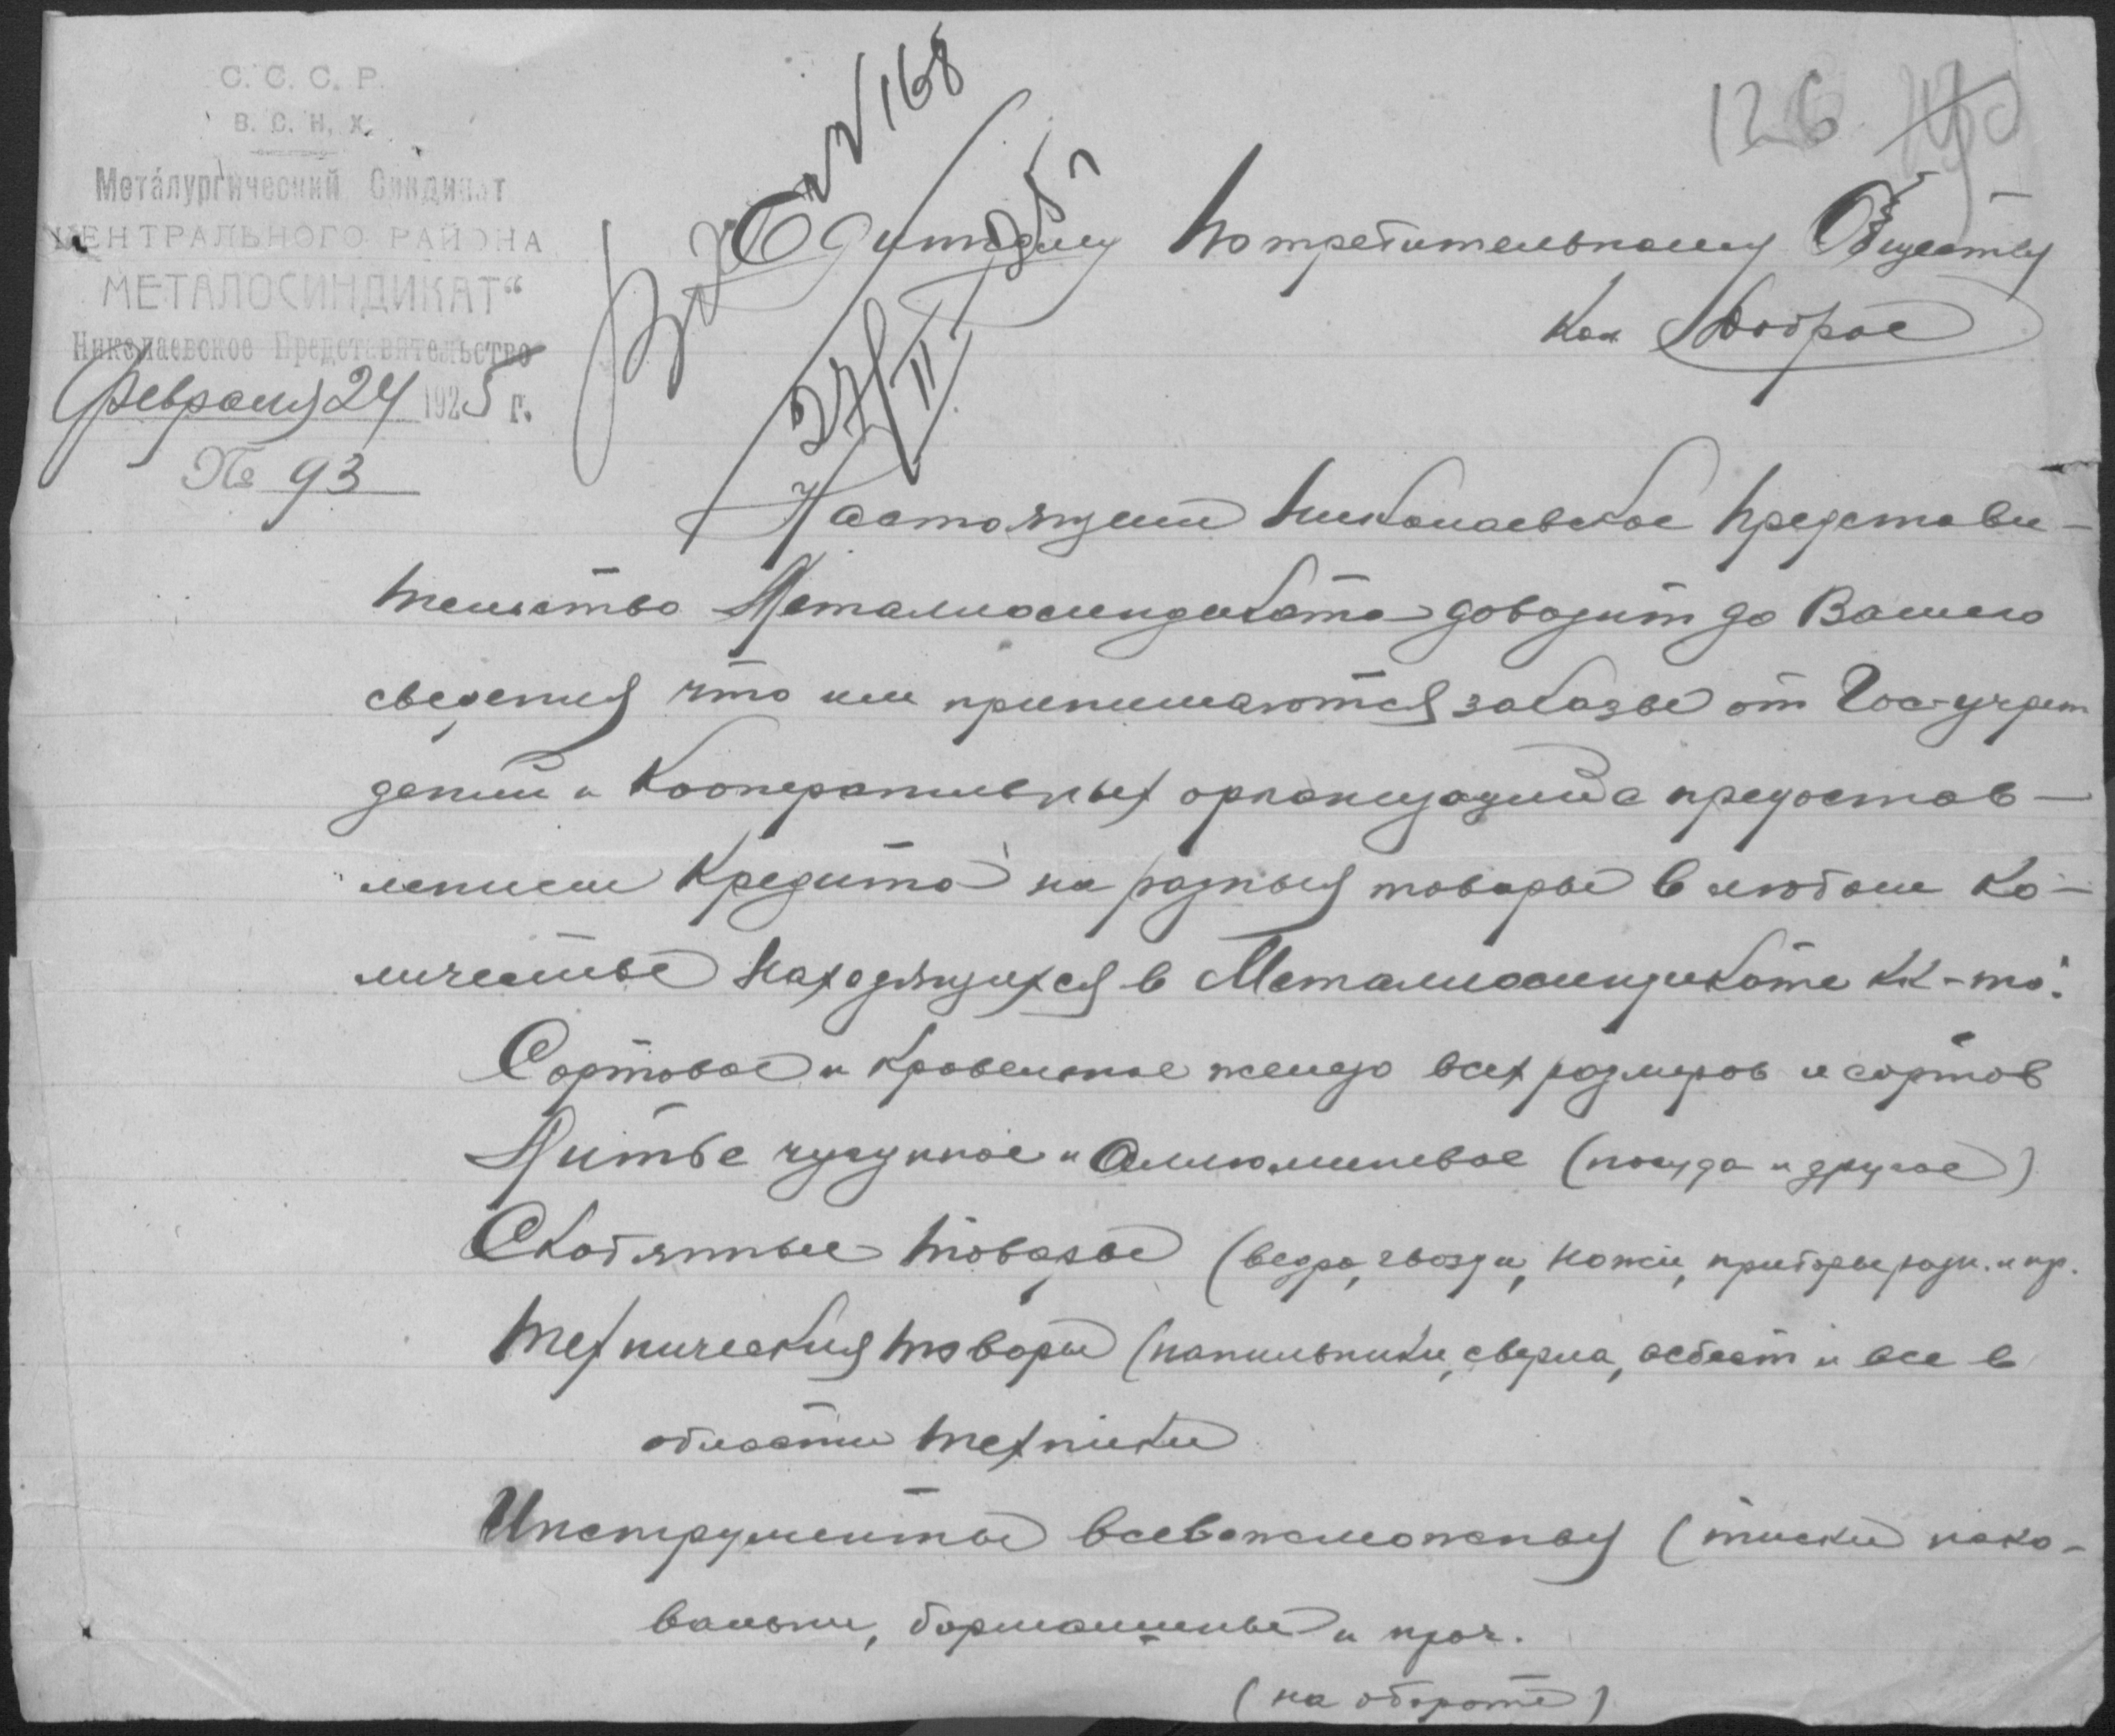 С. С. С. Р.
В. С. Н. Х.
Метáлургический Синдикат
ЦЕНТРАЛЬНОГО РАЙОНА
МЕТАЛОСИНДИКАТ“
Николаевское Представительство
Февраля 24 1925 г.
№ 93
Вх № 168
27/II 25
126
Потребительному Обществу
Кол Доброе
Настоящим Николаевское Представи-
тельство Металлосиндиката доводит до Вашего
сведения что им принимаются заказы от Гос-учреж
дений и Кооперативных организаций с предостав-
лением Кредита на разныя товары в любом Ко-
личестве находящихся в Металлосиндикате Кк-то:
Сортовое и Кровельное железо всех размеров и сортов
Литье чугунное и Аллюминевое (посуда и другое)
Скобянные товары (ведра, гвозди, ножи, приборы разн. и пр.
Техническия товары (напильники, сверла, асбест и все в
области техники
Инструменты всевозможныя (тиски нако-
вальни, бормашины и проч.
(на обороте)